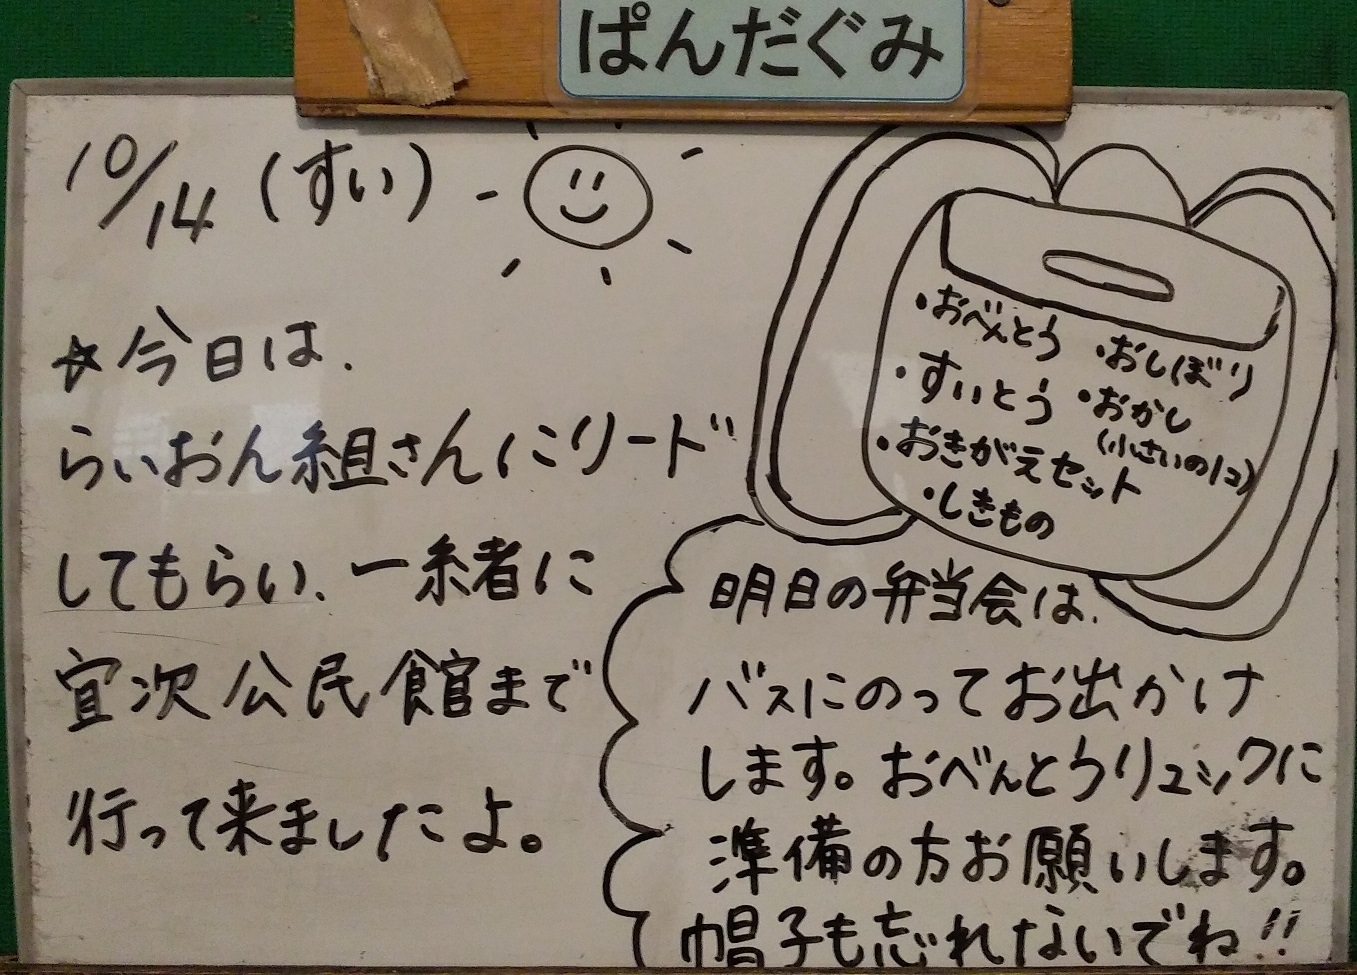 ぱんだぐみ
10/14（すい）
☆今日は、
らいおん組さんにリード
してもらい、一緒に
宜次公民館まで
行って来ましたよ。
・おべんとう ・おしぼり
・すいとう ・おかし
(小さいの1コ)
・おきがえセット
・しきもの
明日の弁当会は、
バスにのってお出かけ
します。おべんとうリュックに
準備の方お願いします。
帽子も忘れないでね!!